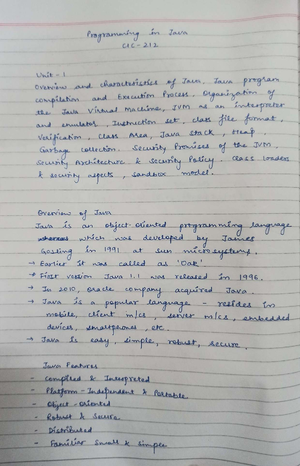 Programming in Java
CIC-212
Unit - 1
Overview and characteristics of Java, Java program
compilation and Execution Process, Organization of
the Java Virtual Machine, JVM as an interpreter
and emulator, Instruction set, class file format,
Verification, Class Area, Java Stack, Heap,
Garbage collection. Security Promises of the JVM,
Security Architecture & Security Policy. Class loaders
& security aspects, sandbox model.
Overview of Java
Java is an object-oriented programming language
which was developed by James
Gosling in 1991 at sun microsystems.
→ Earlier it was called as 'Oak'
→ First version Java 1.1 was released in 1996.
→ In 2010, oracle company acquired Java.
→ Java is a popular language - resides in
mobile, client m/cs, server m/cs, embedded
devices, smartphones, etc.
→ Java is easy, simple, robust, secure.
Java Features
- Compiled & Interpreted
- Platform-Independent & Portable
- Object-Oriented
- Robust & Secure
- Distributed
- Familiar Small & Simple